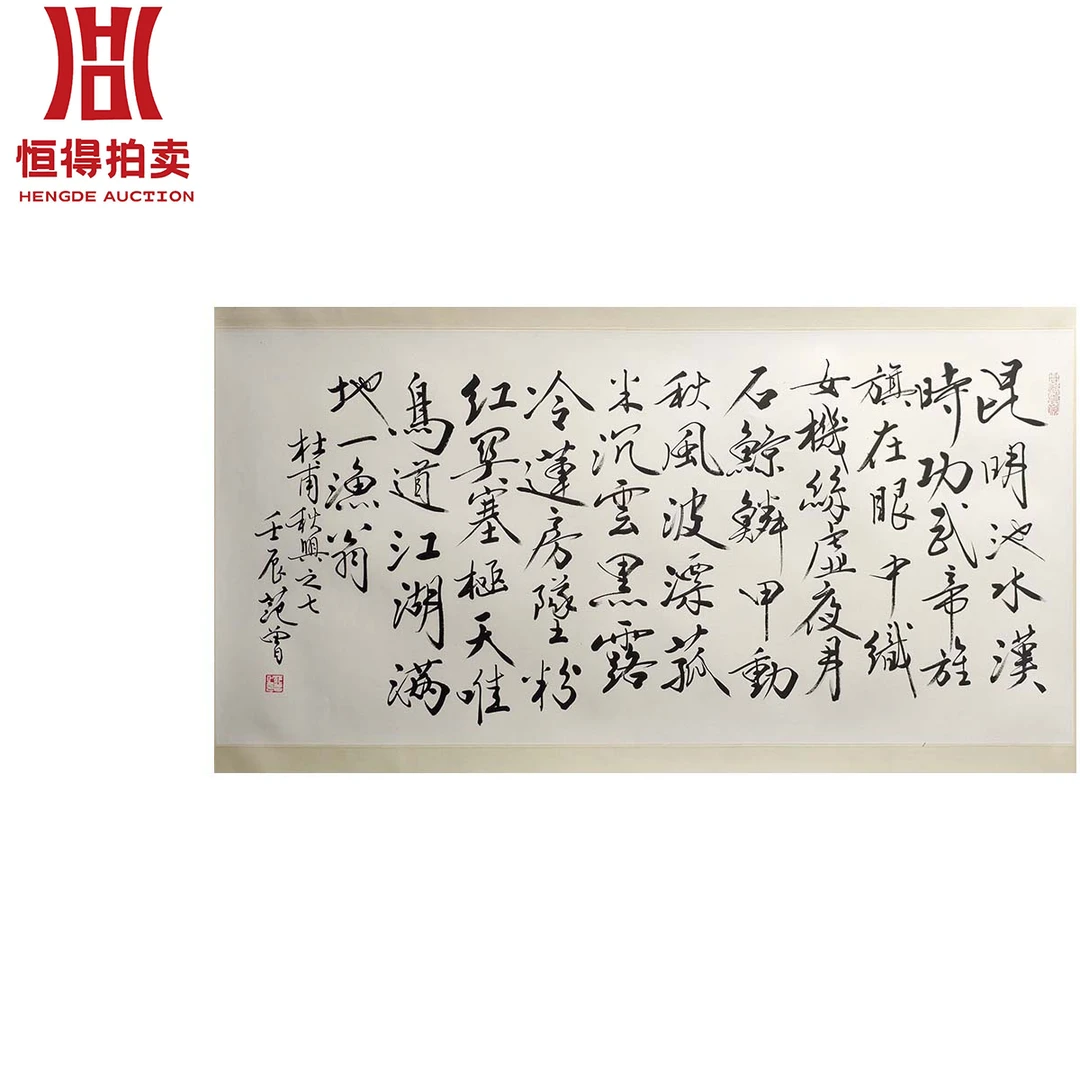 恒得拍卖
HENGDE AUCTION
昆明池水漢
時功武帝旌
旗在眼中織
女機絲虛夜月
石鯨鱗甲動
秋風波漂菰
米沉雲黑露
冷蓮房墜粉
红関塞極天唯
鳥道江湖满
地一漁翁
杜甫秋興之七
壬辰范曾